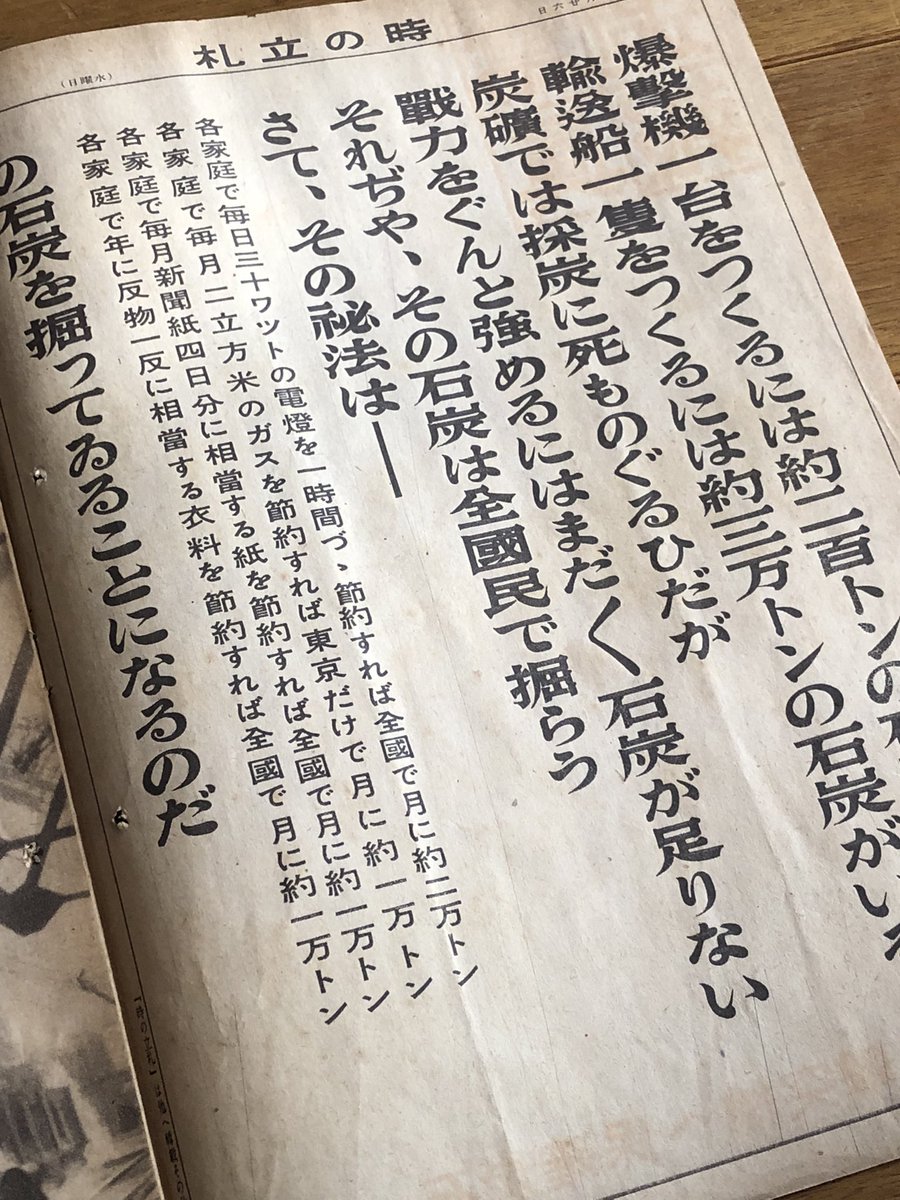 六日
時の立札
（水曜日）
爆擊機一台をつくるには約二百トンの石
輸送船一隻をつくるには約三万トンの石炭がいる
炭礦では採炭に死ものぐるひだが
戰力をぐんと強めるにはまだ〱石炭が足りない
それぢや、その石炭は全國民で掘らう
さて、その祕法は――
各家庭で毎日三十ワットの電燈を一時間づゝ節約すれば全國で月に約二万トン
各家庭で毎月二立方米のガスを節約すれば東京だけで月に約一万トン
各家庭で毎月新聞紙四日分に相當する紙を節約すれば全國で月に約一万トン
各家庭で年に反物一反に相當する衣料を節約すれば全國で月に約一万トン
の石炭を掘つてゐることになるのだ
『時の立札』は